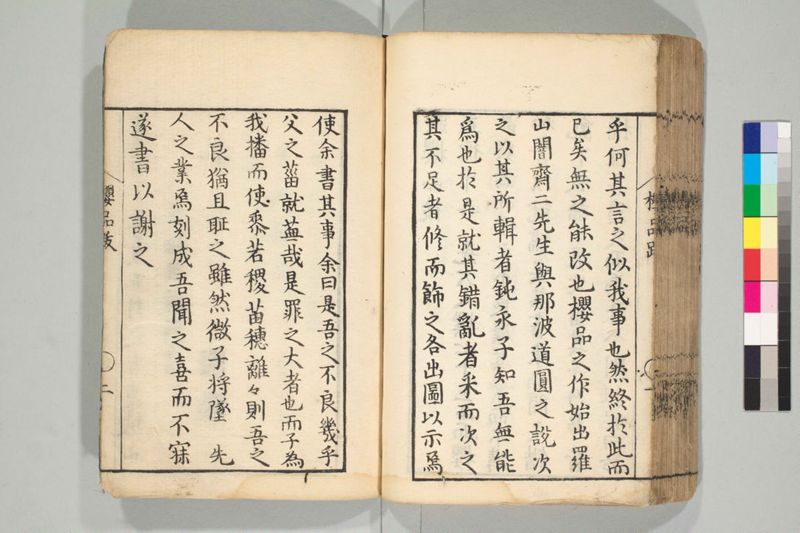 乎何其言之似我事也然終於此而
已矣無之能改也櫻品之作始出羅
山闇齋二先生與那波道圓之說次
之以其所輯者鈍永子知吾無能
爲也於是就其錯亂者釆而次之
其不足者修而飾之各出圖以示爲
櫻品跋
使余書其事余曰是吾之不良幾乎
父之菑就蕪哉是罪之大者也而子為
我播而使黍若稷苗穗離々則吾之
不良猶且耻之雖然微子将墜 先
人之業爲刻成吾聞之喜而不寐
遂書以謝之
櫻品跋
二